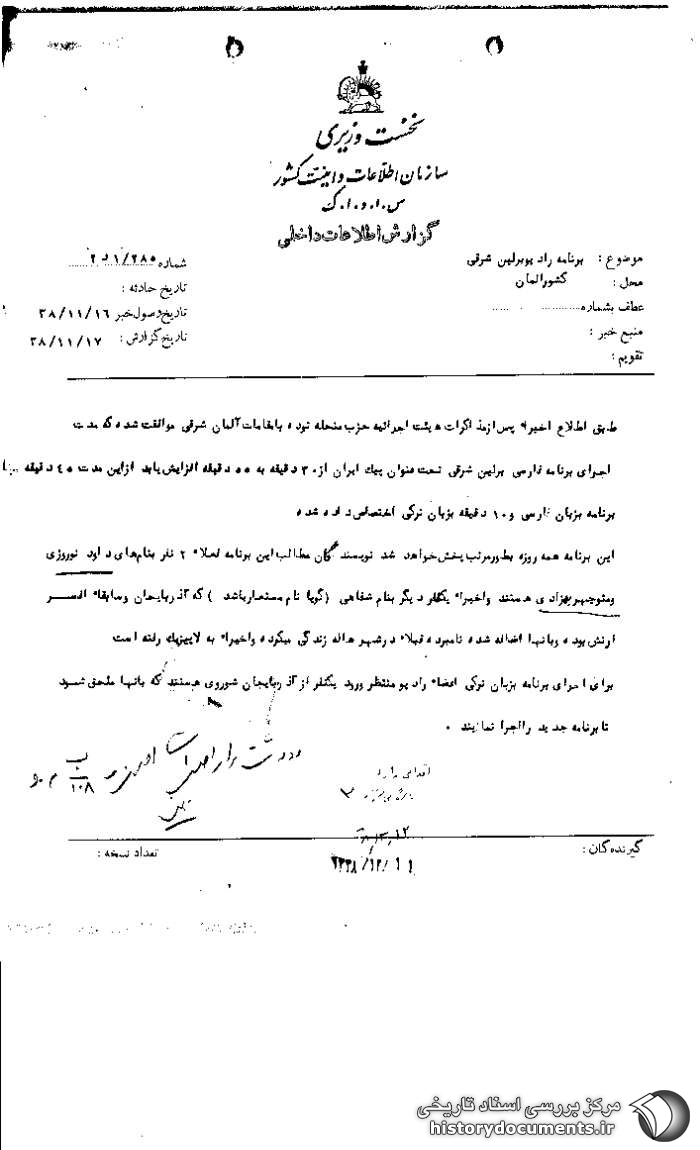 نخست وزیری
سازمان اطلاعات و امنیت کشور
س.ا.و.ا.ک
گزارش اطلاعات داخلی
موضوع : برنامه رادیو برلین شرقی
محل : کشور المان
عطف بشماره
منبع خبر :
تقویم :
شماره ۲۸۵/ ۱ د ۲
تاریخ حادثه :
تاریخ وصول خبر ۳۸/۱۱/۱۶
تاریخ گزارش : ۳۸/۱۱/۱۷
طبق اطلاع اخیراً پس از مذاکرات هیئت اجرائیه حزب منحله توده با مقامات آلمان شرقی موافقت شده که مدت
اجرای برنامه فارسی برلین شرقی تحت عنوان پیک ایران از ۳۰ دقیقه به ۵۵ دقیقه افزایش یابد ازاین مدت ۴۵ دقیقه
برنامه بزبان فارسی و ۱۰ دقیقه بزبان ترکی اختصاص داده شده
این برنامه همه روزه بطور مرتب پخش خواهد شد نویسندگان مطالب این برنامه فعلاً ۲ نفر بنام‌های داود نوروزی
ومنوچهر بهزادی هستند واخیراً یکنفر دیگر بنام شفاهی (گویا نام مستعار باشد ) که آذربایجان وسابقاً افسر
ارتش بوده وبانها اضافه شده نامبرده قبلاً در شهر هاله زندگی میکرده واخیراً به لایپزیک رفته است
برای اجرای برنامه بزبان ترکی اعضاء رادیو منتظر ورود یکنفر از آذربایجان شوروی هستند که بانها ملحق شود
تا برنامه جدید را اجرا نمایند .
۱۰۸
گیرندگان :
تعداد نسخه :
مرکز بررسی اسناد تاریخی
historydocuments.ir